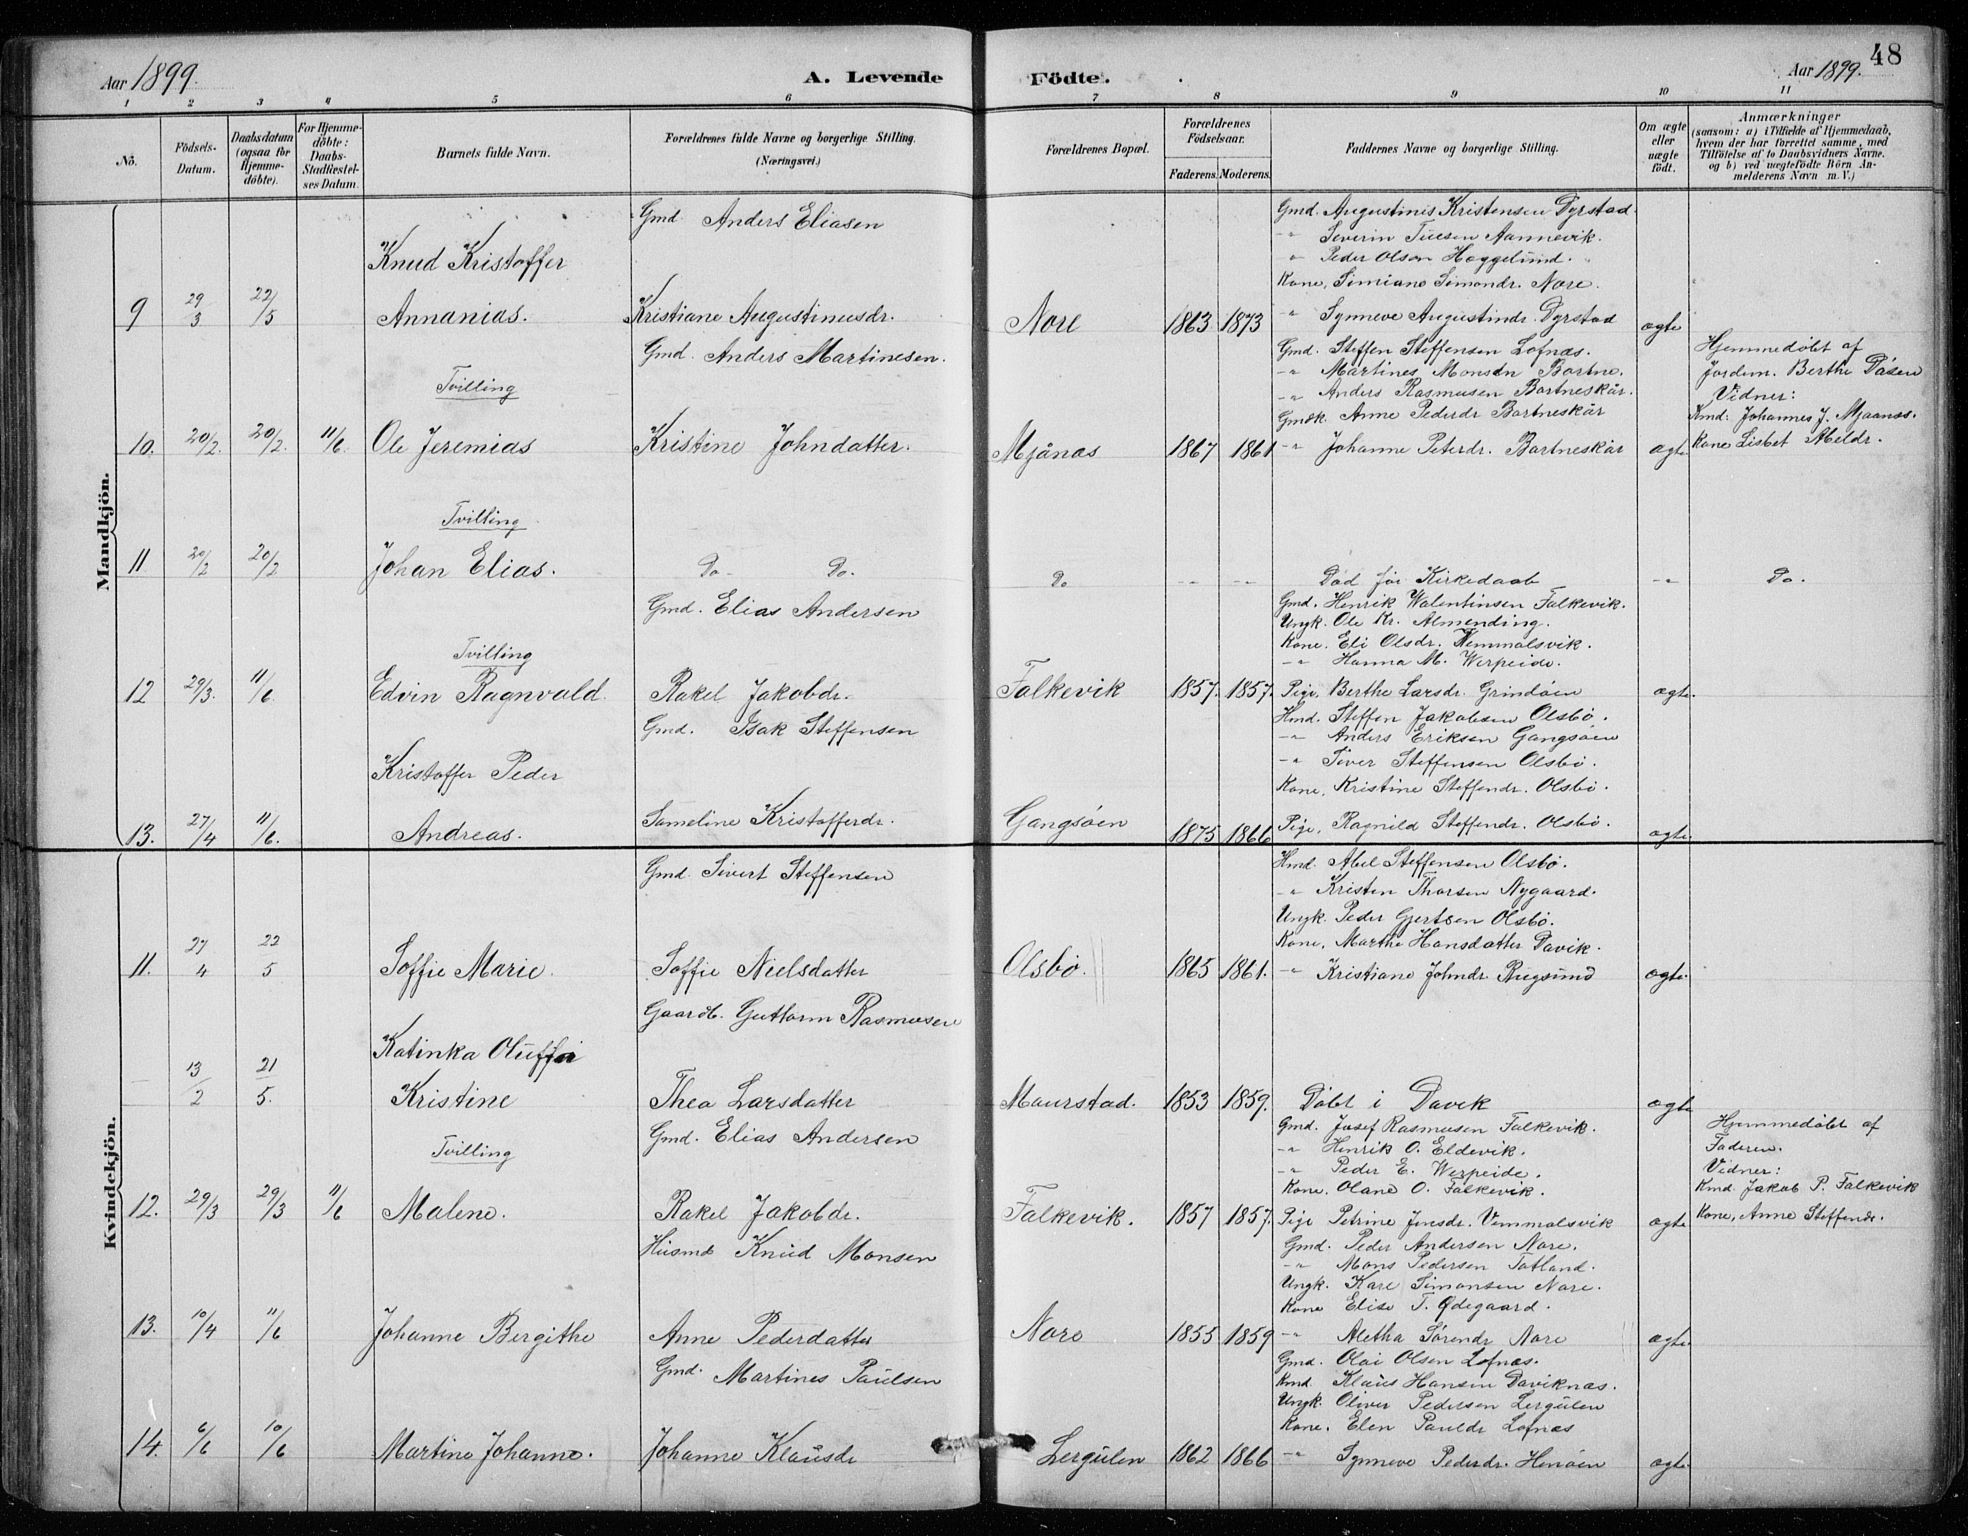 48
Aar 1899.
A. Levende Födte.
Aar 1899.
1 2 3 4 5 6 7 8 9 10 11
No.
Födsels-Datum.
Daabsdatum (ogsaa for Hjemme-döbte).
For Hjemme-döbte: Daabs-Stadfæstel-ses Datum.
Barnets fulde Navn.
Forældrenes fulde Navne og borgerlige Stilling. (Næringsvei.)
Forældrenes Bopæl.
Forældrenes Födselsaar.
Faderens. Moderens.
Faddernes Navne og borgerlige Stilling.
Om ægte eller uægte födt.
Anmærkninger
(saasom: a) i Tilfælde af Hjemmedaab,
hvem der har forrettet samme, med
Tilföielse af to Daabsvidners Navne,
og b) ved uægtefödte Börn An-
melderens Navn m. V.)
Mandkjön.
Gmd. Anders Eliasen
Gmd. Augustinis Kristensen Dyrstad.
-"- Severin Tuesen Aannevik.
Knud Kristoffer
" Peder Olsen Heggelund.
Kone, Simiane Simondr. Nore.
9 29/3 22/5 Annanias. Kristiane Augustinusdr. Nore 1863 1873 " Synneve Augustindr. Dyrstad ægte
Gmd. Anders Martinesen.
Gmd. Steffen Steffensen Lofnæs.
Hjemmedøbt af
-"- Martines Monsen Bortne.
Jordem. Berthe Dåsen
Tvilling
-"- Anders Rasmusen Bortneskår.
Vidner:
Gmdk. Anne Pederdr Bortneskår
Kmd: Johannes J. Mjaanæs.
10. 20/2. 20/2. 11/6. Ole Jeremias Kristine Johndatter. Mjånæs 1867 1861 -"- Johanne Peterdr. Bortneskår ægte. Kone Lisbet Abeldr.
Tvilling
11 20/2 20/2 Johan Elias. Do- Do. Do -"- -"- Død før Kirkedaab -"- Do.
Gmd. Elias Andersen
Gmd. Henrik Walentinsen Falkevik.
Ungk. Ole Kr. Almending.
Kone. Eli Olsdr. Vemmalsvik.
Tvilling
-"- Hanna M. Werpeide.
12 29/3. 11/6. Edvin Ragnvald. Rakel Jakobdr. Falkevik 1857. 1857. Pige, Berthe Larsdr. Grindøen ægte.
Gmd. Isak Steffensen
Hmd. Steffen Jakobsen Olsbø.
-"- Anders Eriksen Gangsøen
Kristoffer Peder
-"- Siver Steffensen Olsbø.
Kone, Kristine Steffendr. Olsbø.
13. 27/4 11/6. Andreas. Sameline Kristofferdr. Gangsøen 1875 1866 Pige, Ragnild Steffendr. Olsbø. ægte.
Kvindekjön.
Gmd. Sivert Steffensen
Hmd. Abel Steffensen Olsbø.
-"- Kristen Thorsen Nygaard.
Ungk. Peder Gjertsen Olsbø.
Kone, Marthe Hansdatter Davik.
11. 27/4 22/5 Soffie Marie. Soffie Nielsdatter Olsbø. 1865 1861. -"- Kristiane Johndr Rugsund ægte.
Gaardb. Guttorm Rasmusen
Katinka Oluffi
- 13/2 21/5. Kristine Thea Larsdatter Maurstad. 1853 1859. Døbt i Davik ægte
Gmd. Elias Andersen
Gmd. Josef Rasmusen Falkevik.
Hjemmedøbt af
-"- Henrik O. Eldevik.
Faderen.
Tvilling
-"- Peder E. Werpeide.
Vidner:
Kone. Olane O. Falkevik.
Kmd. Jakob P. Falkevik
12. 29/3 29/3 11/6 Malene. Rakel Jakobdr. Falkevik. 1857 1857. Pige Petrine Jensdr. Vemmalsvik ægte Kone, Anne Steffendr.
Husmd Knud Monsen
Gmd. Peder Andersen Nore.
-"- Mons Pedersen Totland.
Ungk. Kare Simonsen Nore.
Kone Elise T. Ødegaard.
13. 10/4 11/6 Johanne Bergithe Anne Pederdatter Nore 1855 1859 -"- Aletha Sørendr Nore ægte.
Gmd. Martines Paulsen
Gmd. Olai Olsen Lofnæs.
Kmd. Klaus Hansen Daviknæs.
Ungk. Oliver Pedersen Lergulen
Kone. Elen Pauldr Lofnæs
14. 6/6 10/6 Martine Johanne. Johanne Klausdr Lergulen 1862 1866 -"- Synneve Pederdr. Henøen ægte.